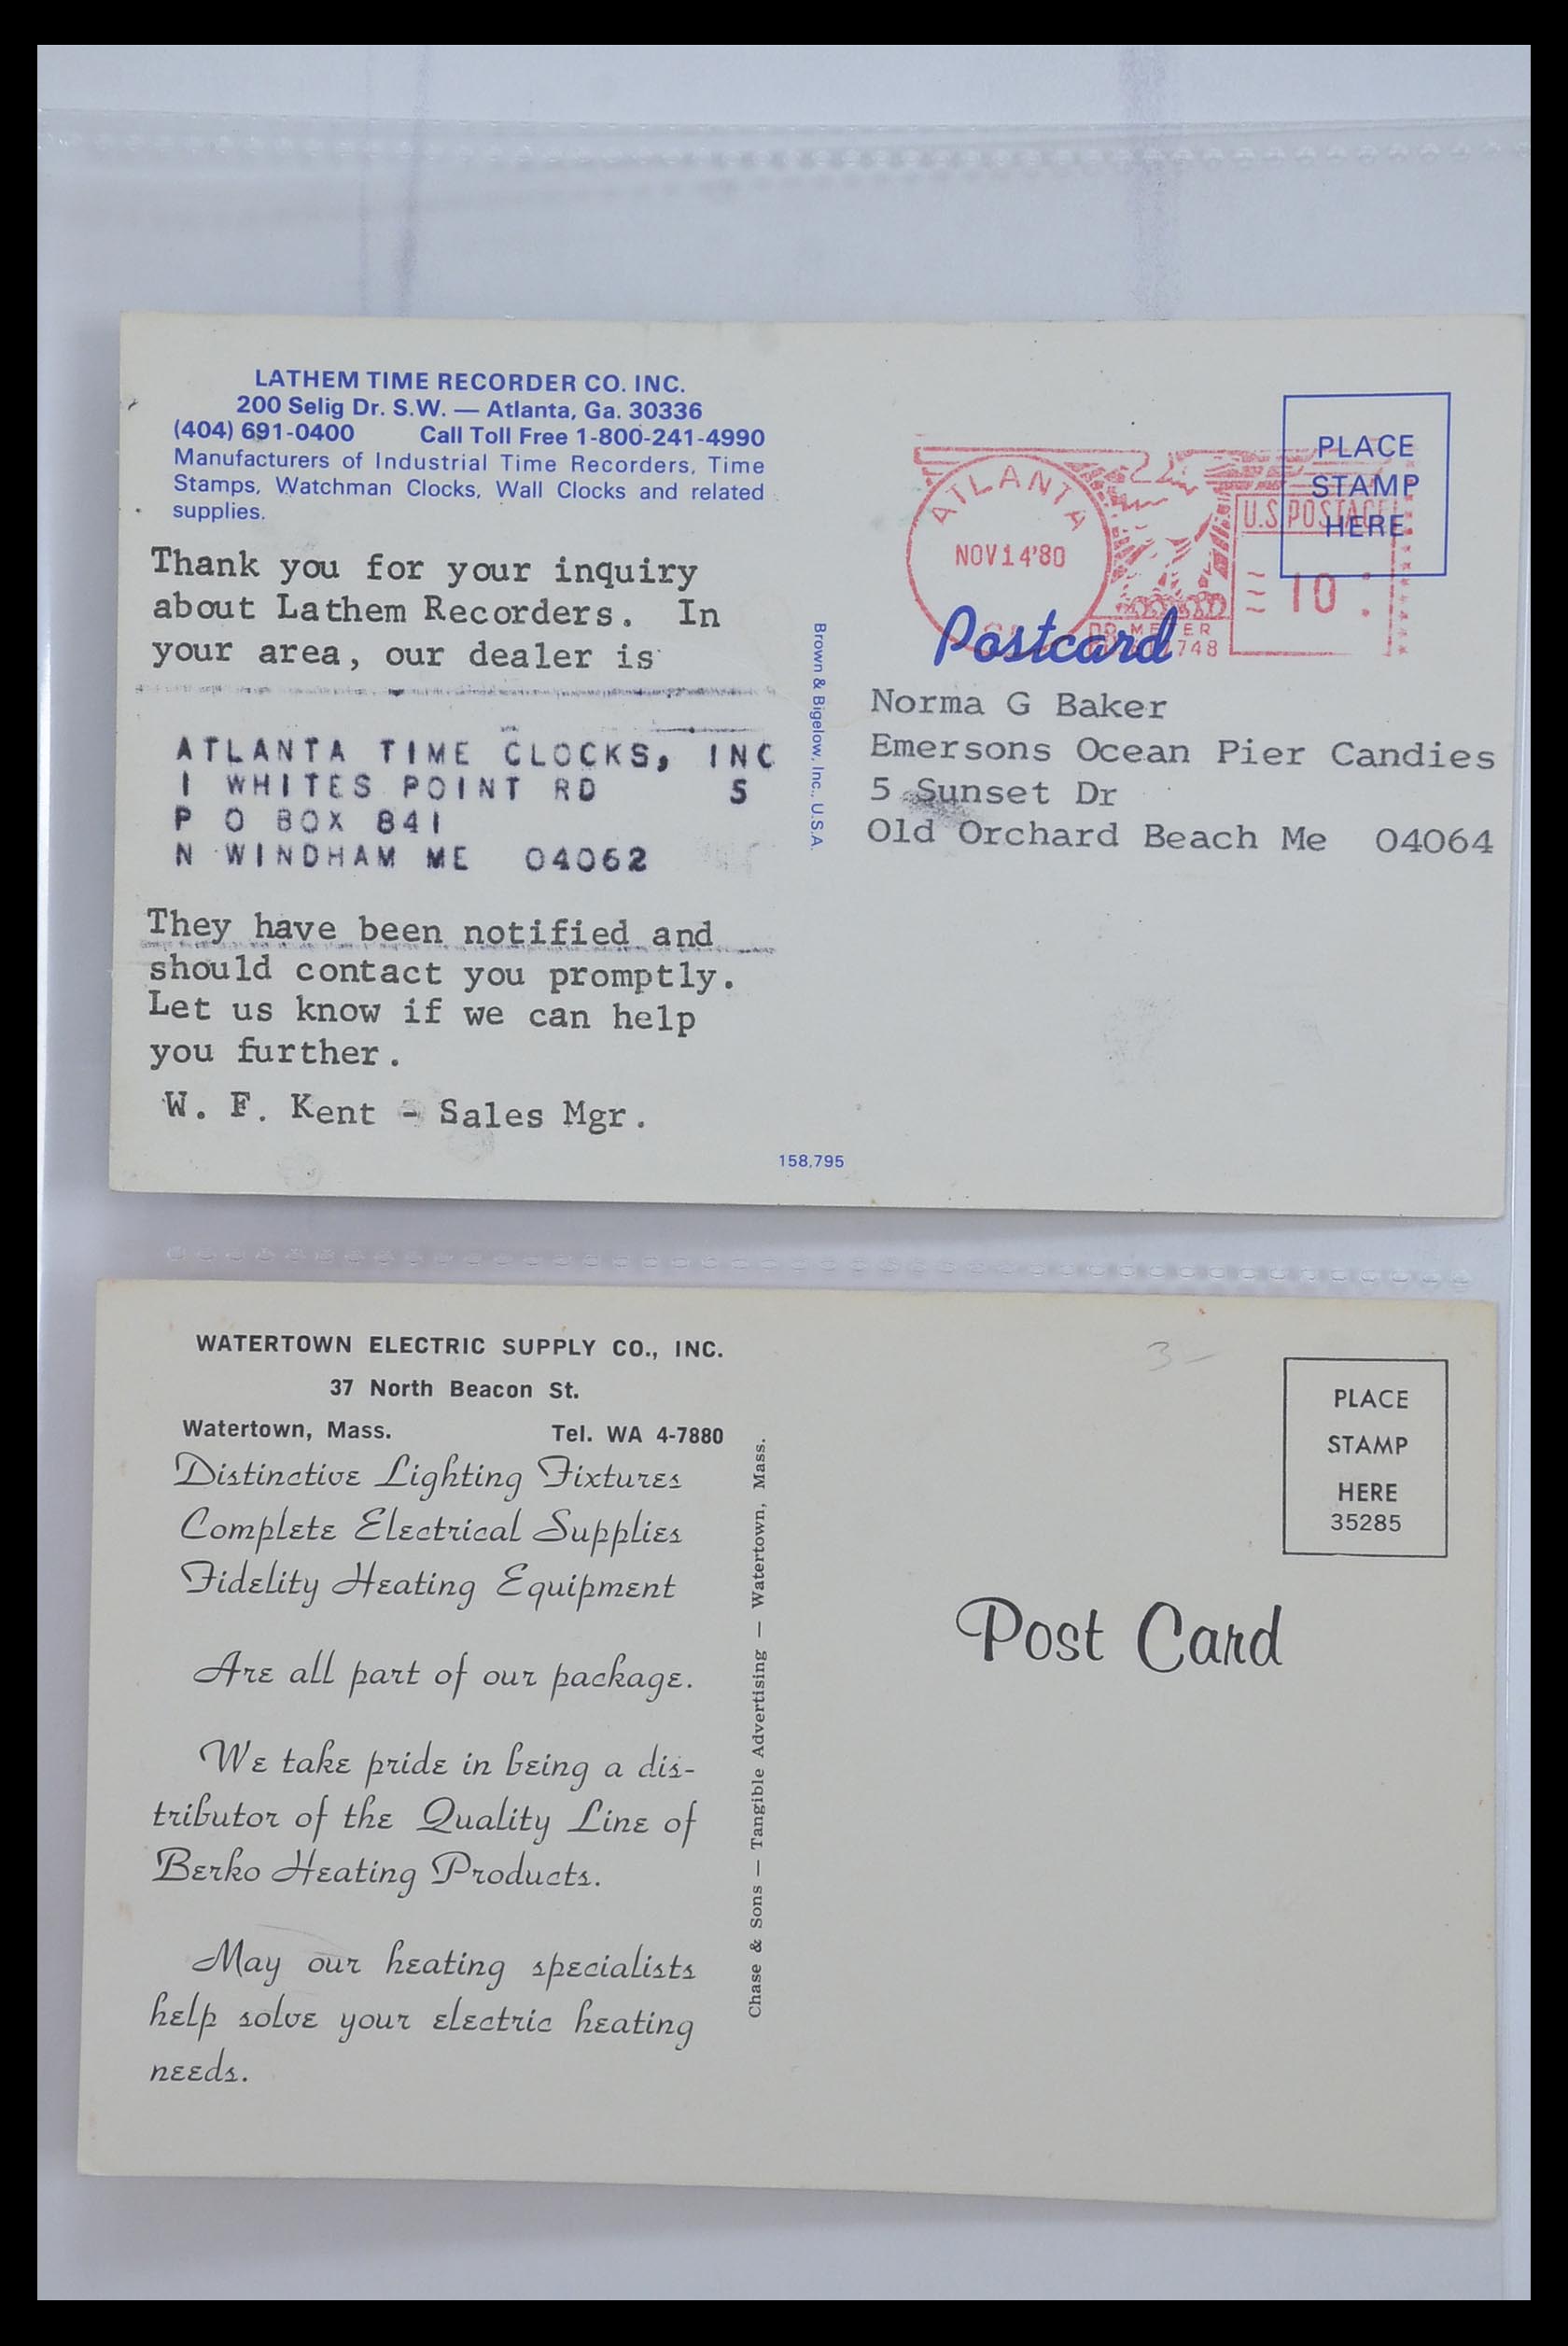 LATHEM TIME RECORDER CO. INC.
200 Selig Dr. S.W. — Atlanta, Ga. 30336
(404) 691-0400 Call Toll Free 1-800-241-4990
Manufacturers of Industrial Time Recorders, Time
Stamps, Watchman Clocks, Wall Clocks and related
supplies.
Thank you for your inquiry
about Lathem Recorders. In
your area, our dealer is
ATLANTA TIME CLOCKS, INC
1 WHITES POINT RD S
P O BOX 841
N WINDHAM ME 04062
They have been notified and
should contact you promptly.
Let us know if we can help
you further.
W. F. Kent - Sales Mgr.
158,795
Brown & Bigelow, Inc., U.S.A.
PLACE
STAMP
HERE
ATLANTA
NOV14'80
U.S. POSTAGE
10
METER
748
Postcard
Norma G Baker
Emersons Ocean Pier Candies
5 Sunset Dr
Old Orchard Beach Me 04064
WATERTOWN ELECTRIC SUPPLY CO., INC.
37 North Beacon St.
Watertown, Mass. Tel. WA 4-7880
Distinctive Lighting Fixtures
Complete Electrical Supplies
Fidelity Heating Equipment
Are all part of our package.
We take pride in being a dis-
tributor of the Quality Line of
Berko Heating Products.
May our heating specialists
help solve your electric heating
needs.
Chase & Sons — Tangible Advertising — Watertown, Mass.
3 —
PLACE
STAMP
HERE
35285
Post Card